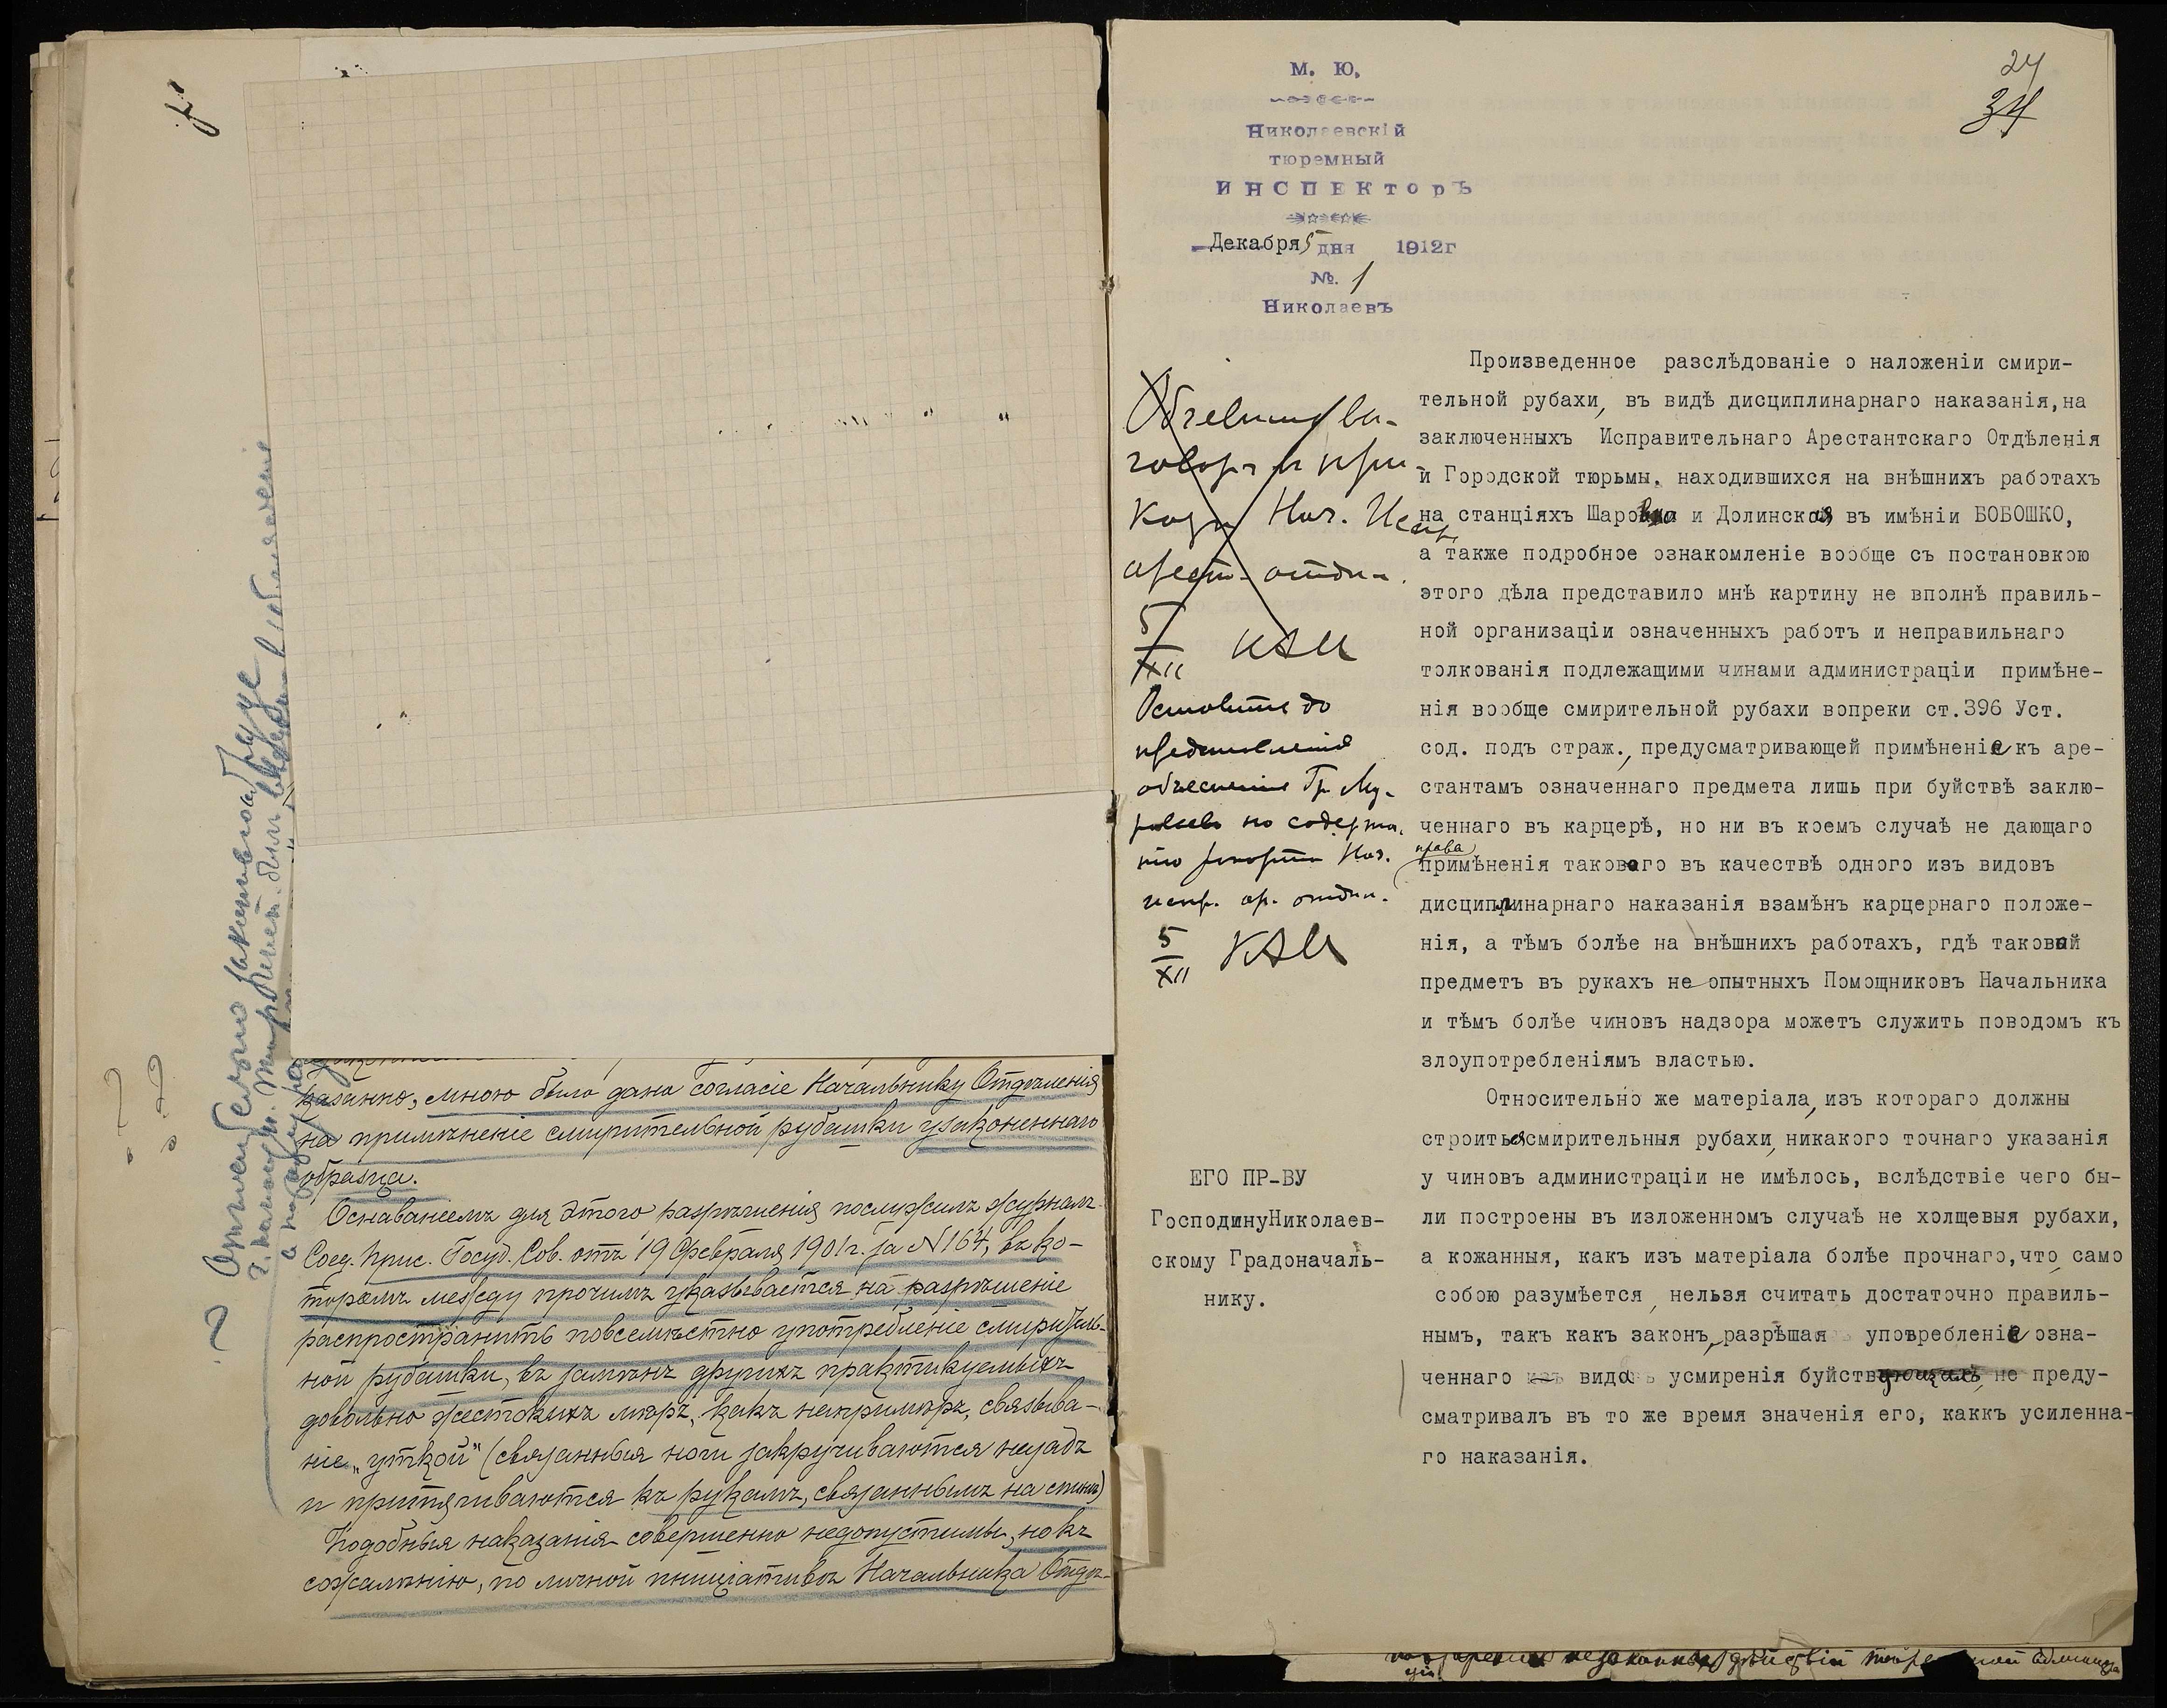 казанно, мною было дано согласіе Начальнику Отдѣленія
на примѣненіе смирительной рубашки узаконеннаго
образца.
Оснаваніемъ для этого разрѣшенія послужилъ журналъ
Соед. Прис. Госуд. Сов. отъ 19 Февраля 1901 г. за N 164, въ ко-
торомъ между прочимъ указывается на разрѣшеніе
распространить повсемѣстно употребленіе смиритель-
ной рубашки, въ замѣнъ другихъ практикуемыхъ
довольно жестокихъ мѣръ, какъ напримѣръ, связыва-
ніе „уткой" (связанныя ноги закручиваются назадъ
и притягиваются къ рукамъ, связаннымъ на спинѣ)
Подобныя наказанія совершенно недопустимы, но къ
сожалѣнію, по личной иниціативѣ Начальника Отдѣ-
24
34
М. Ю.
Николаевскій
тюремный
ИНСПЕКТОРЪ
Декабря 5 дня 1912г
№. 1
Николаевъ
Оставить до
представленія
объясненія Гр. Му-
равьева по содержа-
нію рапорта Нач.
испр. ар. отдѣл.
5
XII
ЕГО ПР-ВУ
ГосподинуНиколаев-
скому Градоначаль-
нику.
Произведенное разслѣдованіе о наложеніи смири-
тельной рубахи, въ видѣ дисциплинарнаго наказанія,на
заключенныхъ Исправительнаго Арестантскаго Отдѣленія
и Городской тюрьмы, находившихся на внѣшнихъ работахъ
на станціяхъ Шаровка и Долинская въ имѣніи БОБОШКО,
а также подробное ознакомленіе вообще съ постановкою
этого дѣла представило мнѣ картину не вполнѣ правиль-
ной организаціи означенныхъ работъ и неправильнаго
толкованія подлежащими чинами администраціи примѣне-
нія вообще смирительной рубахи вопреки ст.396 Уст.
сод. подъ страж., предусматривающей примѣненіе къ аре-
стантамъ означеннаго предмета лишь при буйствѣ заклю-
ченнаго въ карцерѣ, но ни въ коемъ случаѣ не дающаго
права
примѣненія таковаго въ качествѣ одного изъ видовъ
дисциплинарнаго наказанія взамѣнъ карцернаго положе-
нія, а тѣмъ болѣе на внѣшнихъ работахъ, гдѣ таковой
предметъ въ рукахъ не опытныхъ Помощниковъ Начальника
и тѣмъ болѣе чиновъ надзора можетъ служить поводомъ къ
злоупотребленіямъ властью.
Относительно же матеріала, изъ котораго должны
строиться смирительныя рубахи, никакого точнаго указанія
у чиновъ администраціи не имѣлось, вслѣдствіе чего бы-
ли построены въ изложенномъ случаѣ не холщевыя рубахи,
а кожанныя, какъ изъ матеріала болѣе прочнаго,что, само
собою разумѣется, нельзя считать достаточно правиль-
нымъ, такъ какъ законъ, разрѣшая уповребленіе озна-
ченнаго изъ вида усмиренія буйствующихъ, не преду-
сматривалъ въ то же время значенія его, каккъ усиленна-
го наказанія.